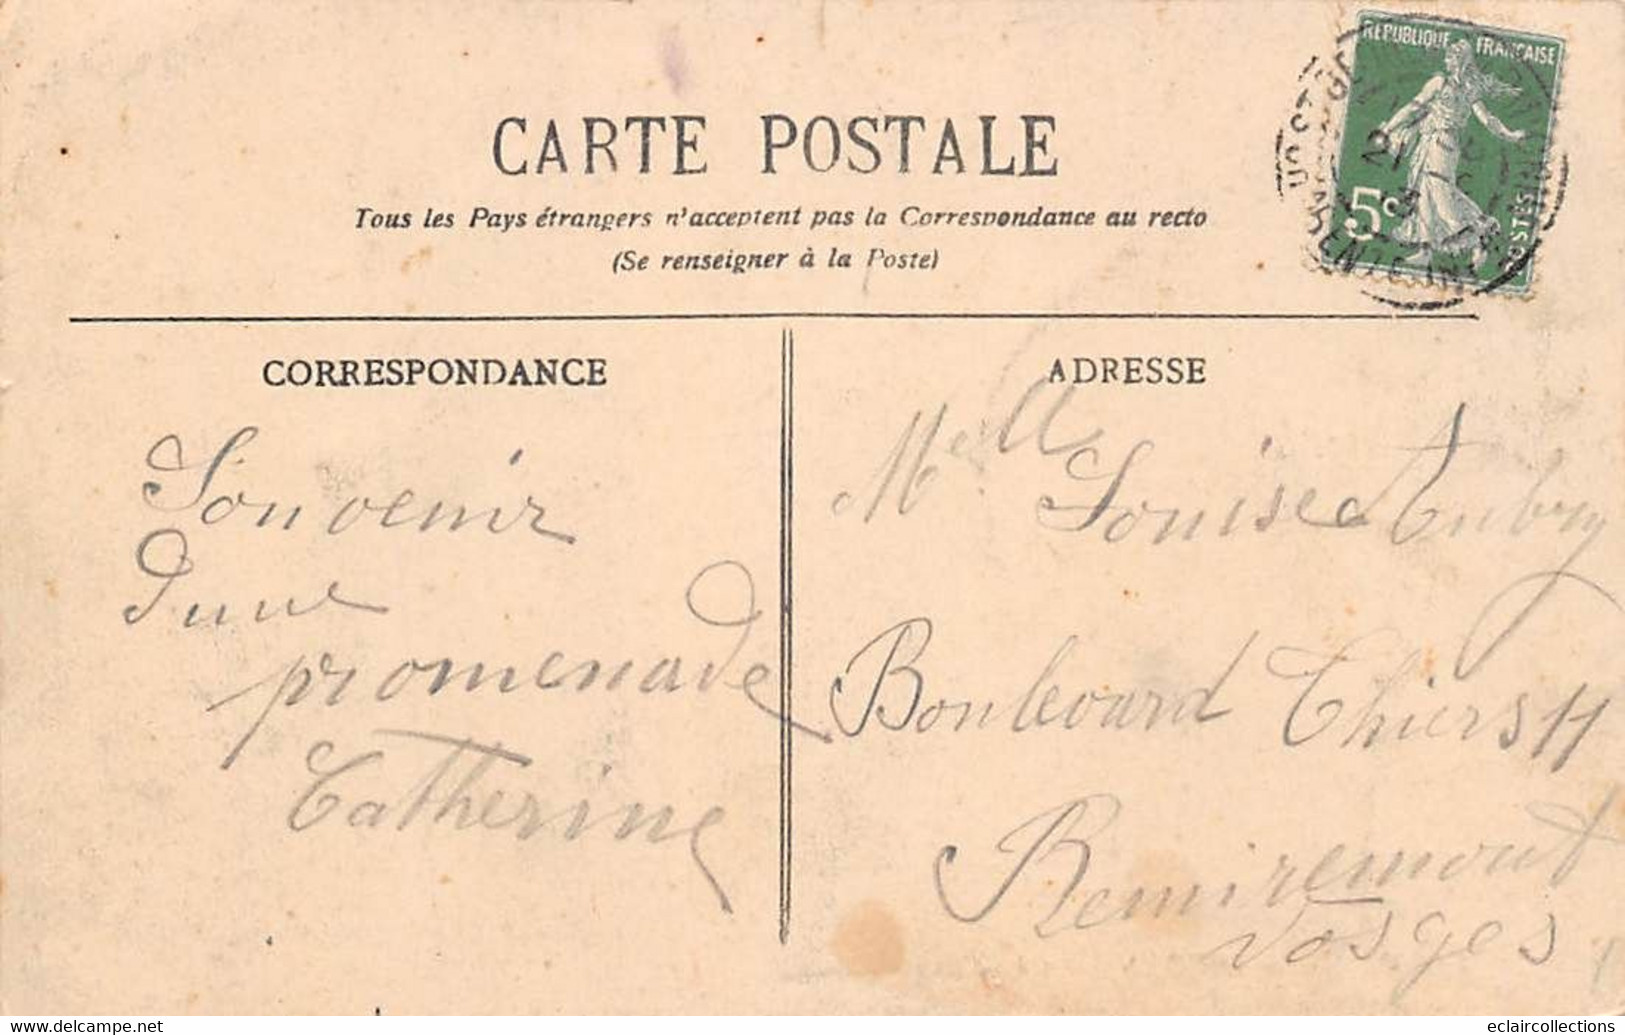 CARTE POSTALE
Tous les Pays étrangers n'acceptent pas la Correspondance au recto
(Se renseigner à la Poste)
RÉPUBLIQUE FRANÇAISE
5c
POSTES
21
CORRESPONDANCE
Souvenir
dune
promenade
Catherine
ADRESSE
Melle Louise Aubry
Boulevard Thiers 11
Remiremont
Vosges
www.delcampe.net
eclaircollections